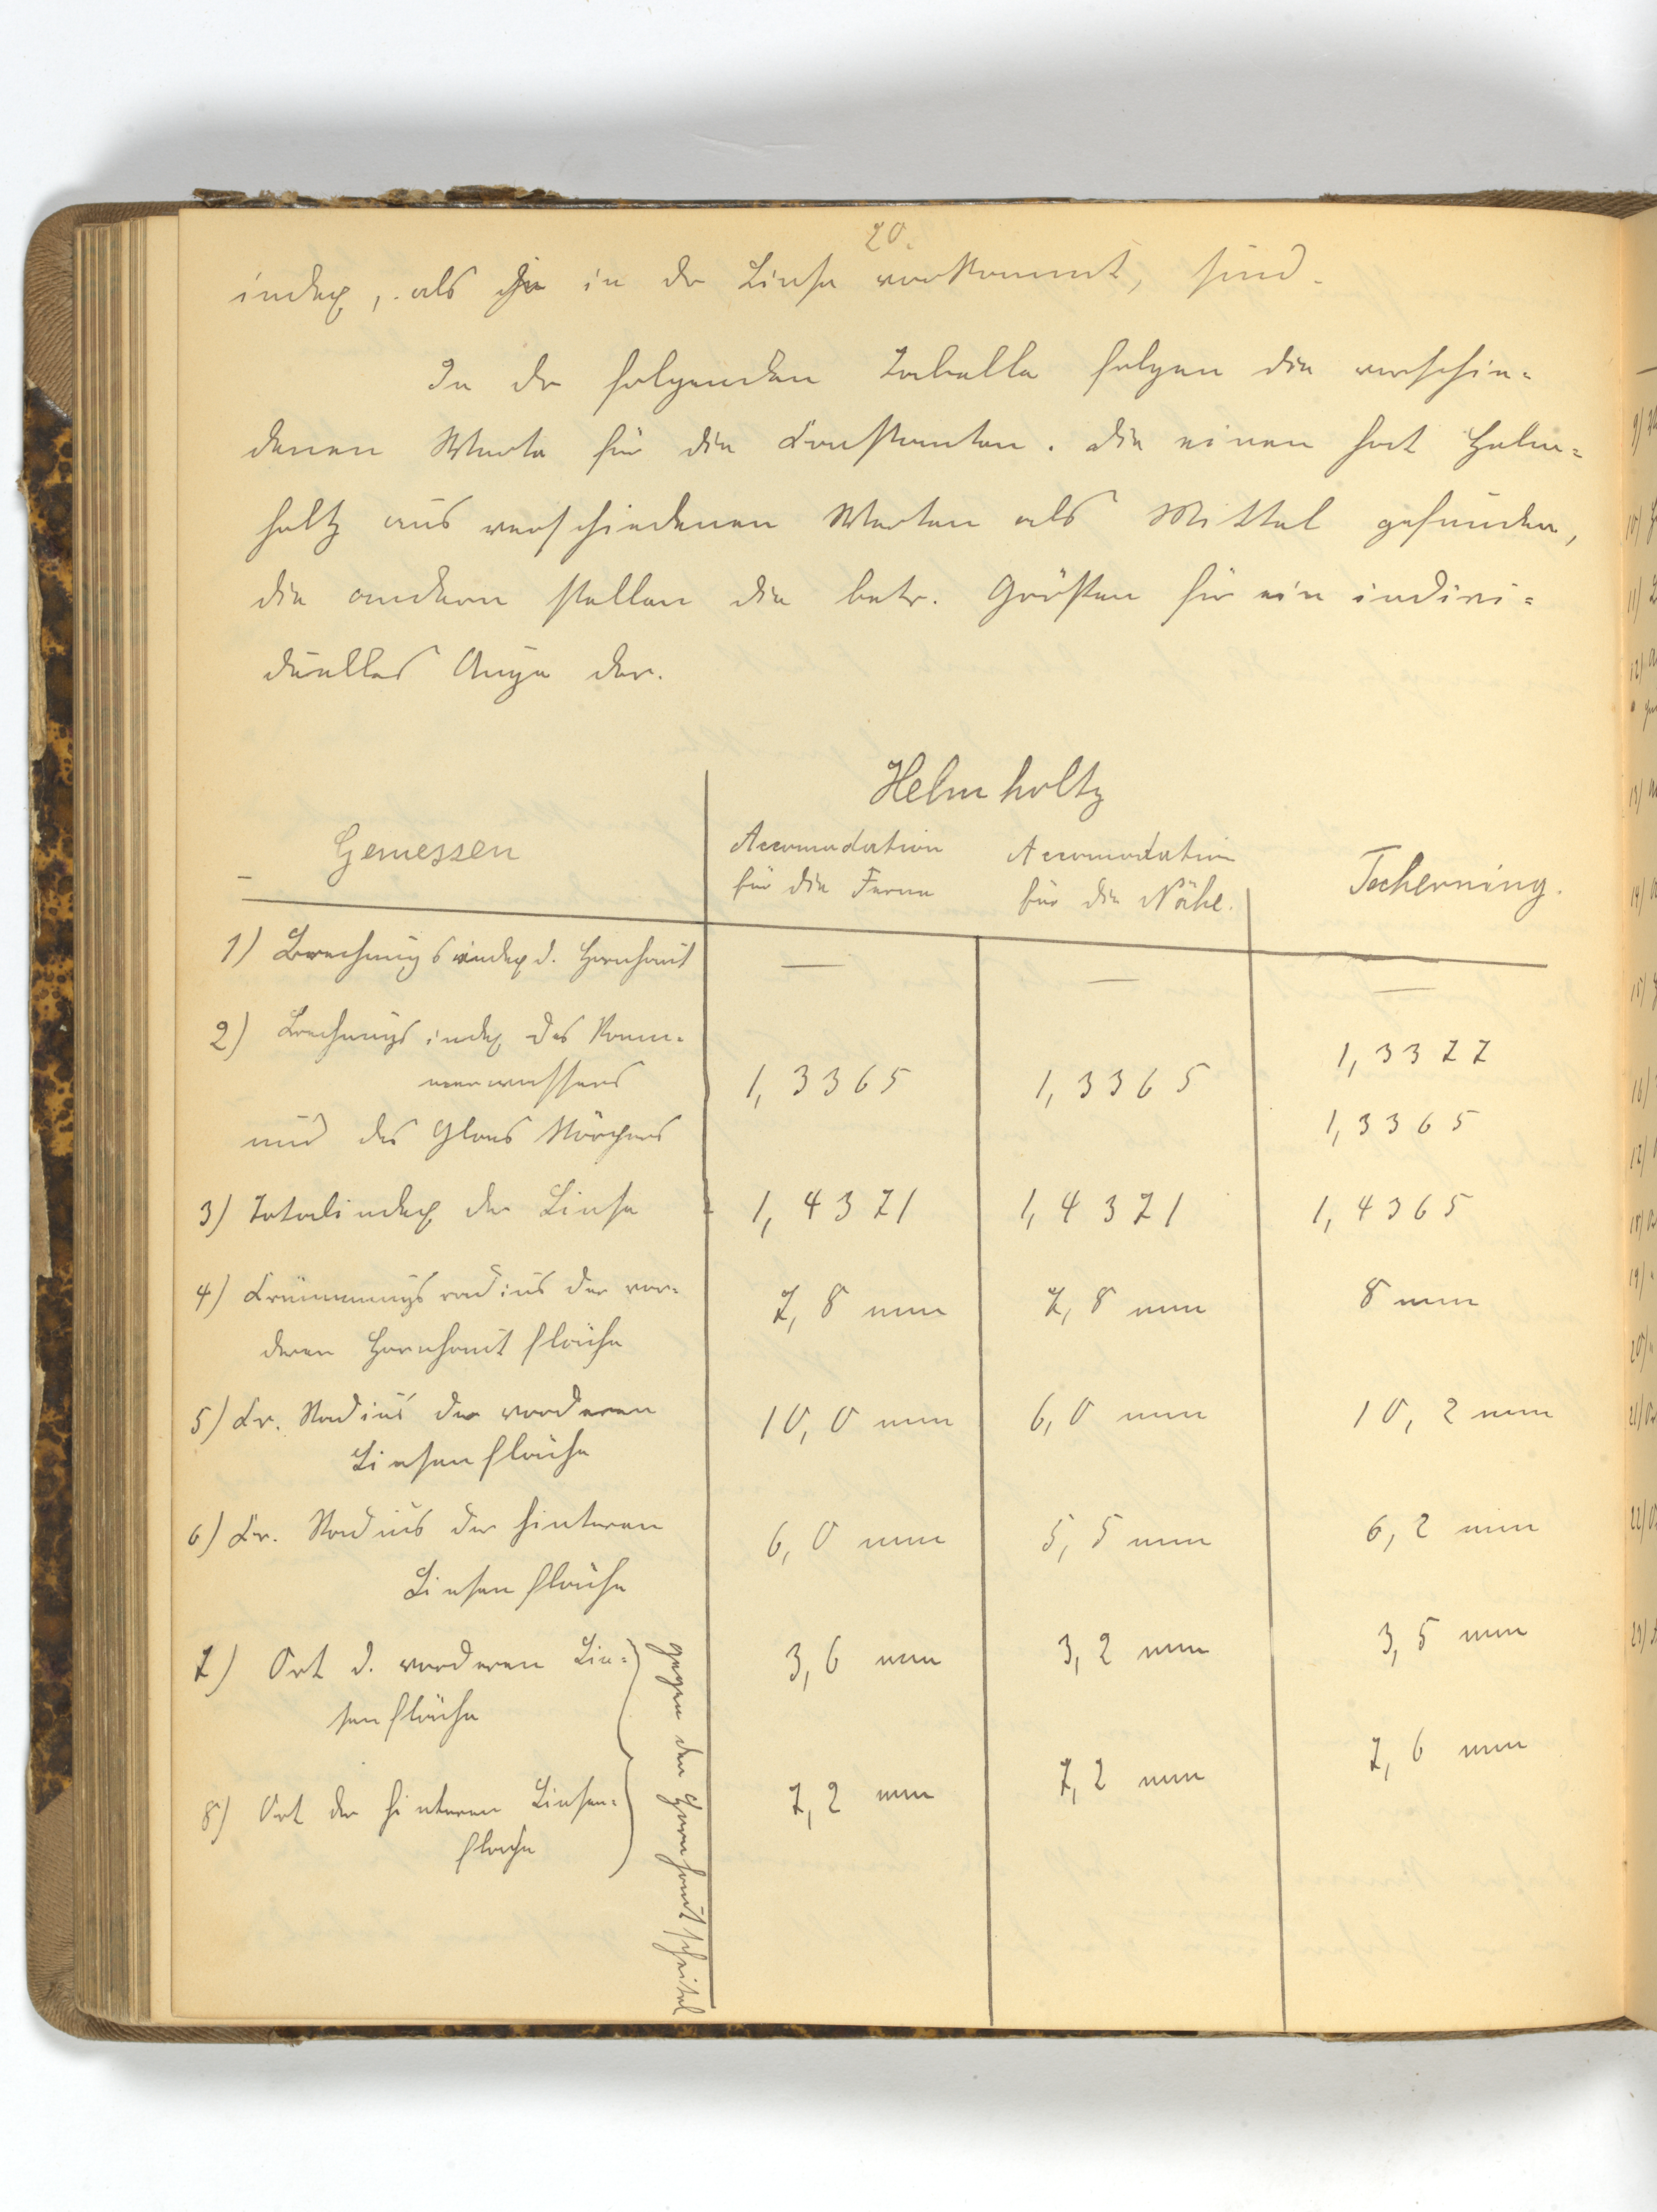 20.
index, als sie in der Linse vorkommt, sind.
In der folgenden Tabelle folgen die verschie-
denen Werte für die Constanten. Die einen hat Helm-
holtz aus verschiedenen Werten als Mittel gefunden,
die andern stellen die betr. Größen für ein indivi-
duelles Auge dar.
Helmholtz
Gemessen
Accomodation
für die Ferne
Accomodation
für die Nähe.
Tscherning.
1) Brechungsindex d. Hornhaut — — —
2) Brechungsindex des Kam-
merwassers 1,3365 1,3365 1,3377
und des Glaskörpers 1,3365
3) Totalindex der Linse 1,4371 1,4371 1,4365
4) Krümmungsradius der vor- 7,8 mm 7,8 mm 8 mm
deren Hornhautfläche
5) Kr. Radius der vorderen 10,0 mm 6,0 mm 10,2 mm
Linsenfläche
6) Kr. Radius der hinteren 6,0 mm 5,5 mm 6,2 mm
Linsenfläche
7) Ort d. vorderen Lin- 3,6 mm 3,2 mm 3,5 mm
senfläche
8) Ort der hinteren Linsen- 7,2 mm 7,2 mm 7,6 mm
fläche
gegen den Hornhautscheitel
9)
10)
11)
12)
13)
14)
15)
16)
17)
18)
19)
20)
21)
22)
23)